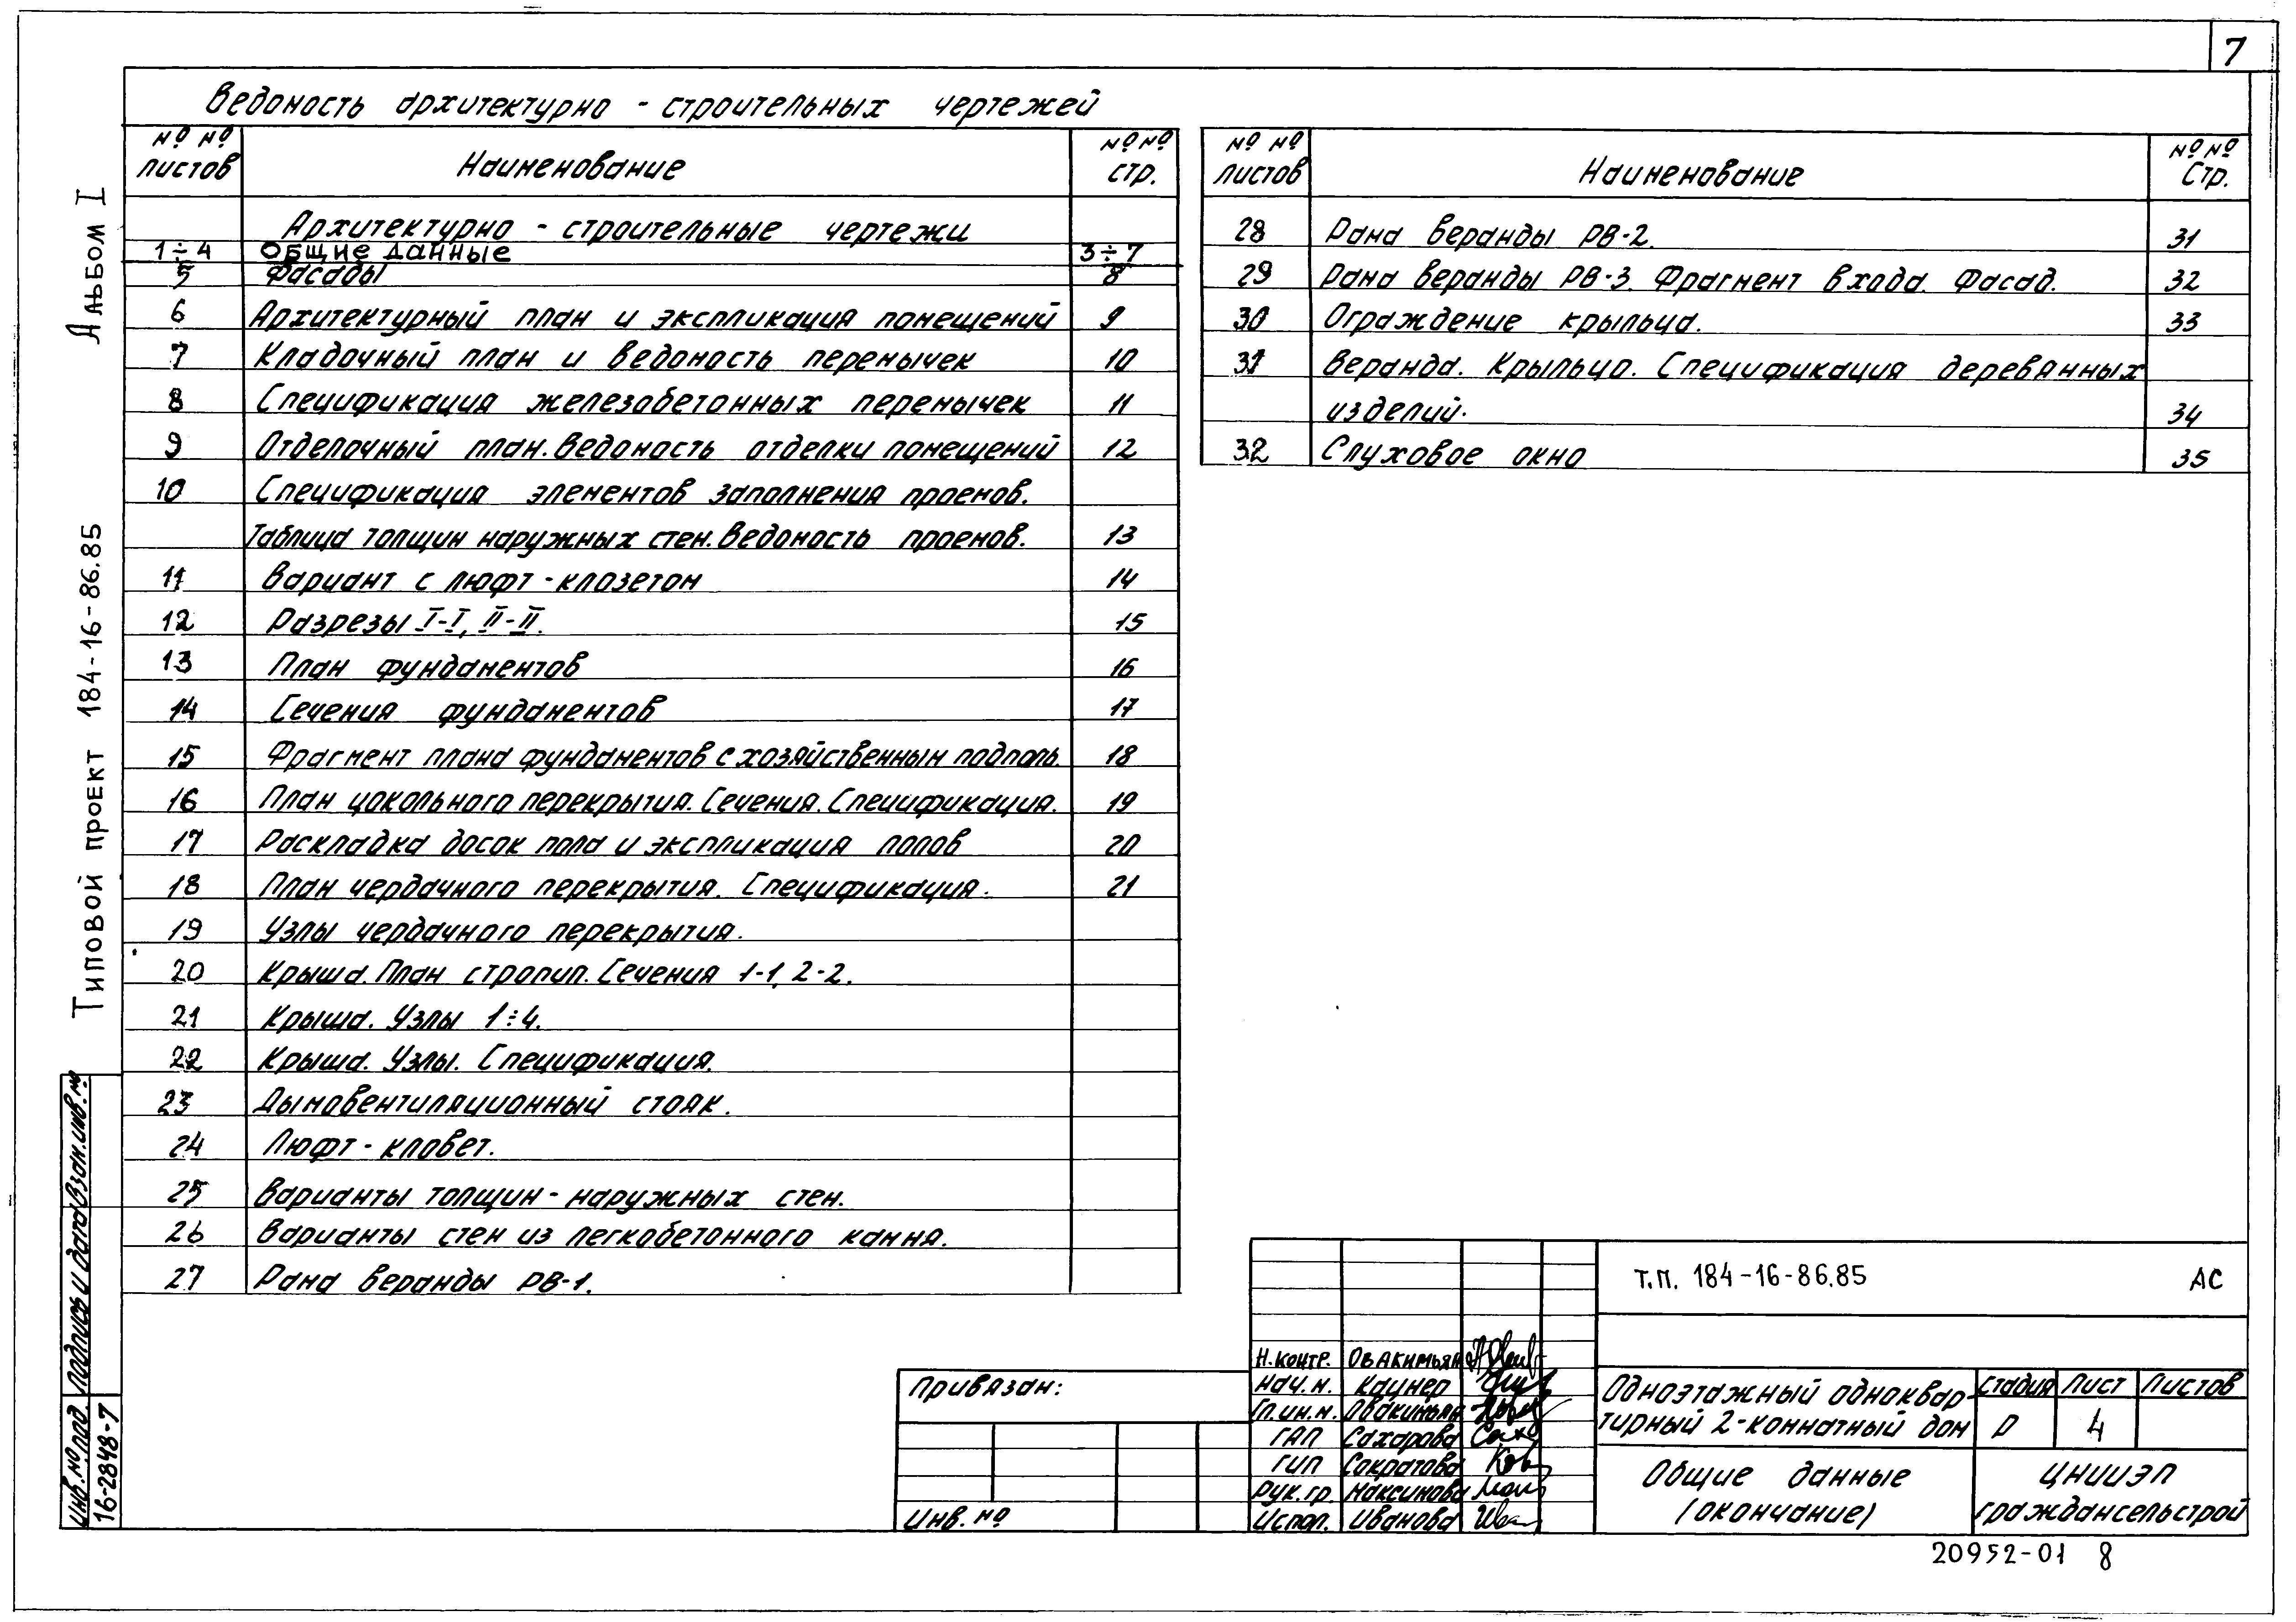 7
Ведомость архитектурно - строительных чертежей
№ № листов Наименование № № стр.
Архитектурно - строительные чертежи
1÷4 Общие данные 3÷7
5 Фасады 8
6 Архитектурный план и экспликация помещений 9
7 Кладочный план и ведомость перемычек 10
8 Спецификация железобетонных перемычек 11
9 Отделочный план. Ведомость отделки помещений 12
10 Спецификация элементов заполнения проемов.
Таблица толщин наружных стен. Ведомость проемов. 13
11 Вариант с люфт-клозетом 14
12 Разрезы I-I, II-II. 15
13 План фундаментов 16
14 Сечения фундаментов 17
15 Фрагмент плана фундаментов с хозяйственным подполь. 18
16 План цокольного перекрытия. Сечения. Спецификация. 19
17 Раскладка досок пола и экспликация полов 20
18 План чердачного перекрытия. Спецификация. 21
19 Узлы чердачного перекрытия.
20 Крыша. План стропил. Сечения 1-1, 2-2.
21 Крыша. Узлы 1÷4.
22 Крыша. Узлы. Спецификация.
23 Дымовентиляционный стояк.
24 Люфт-кловет.
25 Варианты толщин - наружных стен.
26 Варианты стен из легкобетонного камня.
27 Рама веранды РВ-1.
№ № листов Наименование № № Стр.
28 Рама веранды РВ-2. 31
29 Рама веранды РВ-3. Фрагмент входа. Фасад. 32
30 Ограждение крыльца. 33
31 Веранда. Крыльцо. Спецификация деревянных
изделий. 34
32 Слуховое окно 35
Альбом I
Типовой проект 184-16-86.85
Инв.№ под. Подпись и дата Взам.инв.№
16-2848-7
Привязан:
Инв. №
Н.контр. Овакимьян
Нач.м. Каунер
Гл.ин.м. Овакимьян
ГАП Сахарова
ГИП Сократова
Рук.гр. Максимова
Испол. Иванова
Т.П. 184-16-86.85 АС
Одноэтажный одноквар-
тирный 2-комнатный дом
Стадия Лист Листов
Р 4
Общие данные
(окончание)
ЦНИИЭП
граждансельстрой
20952-01 8